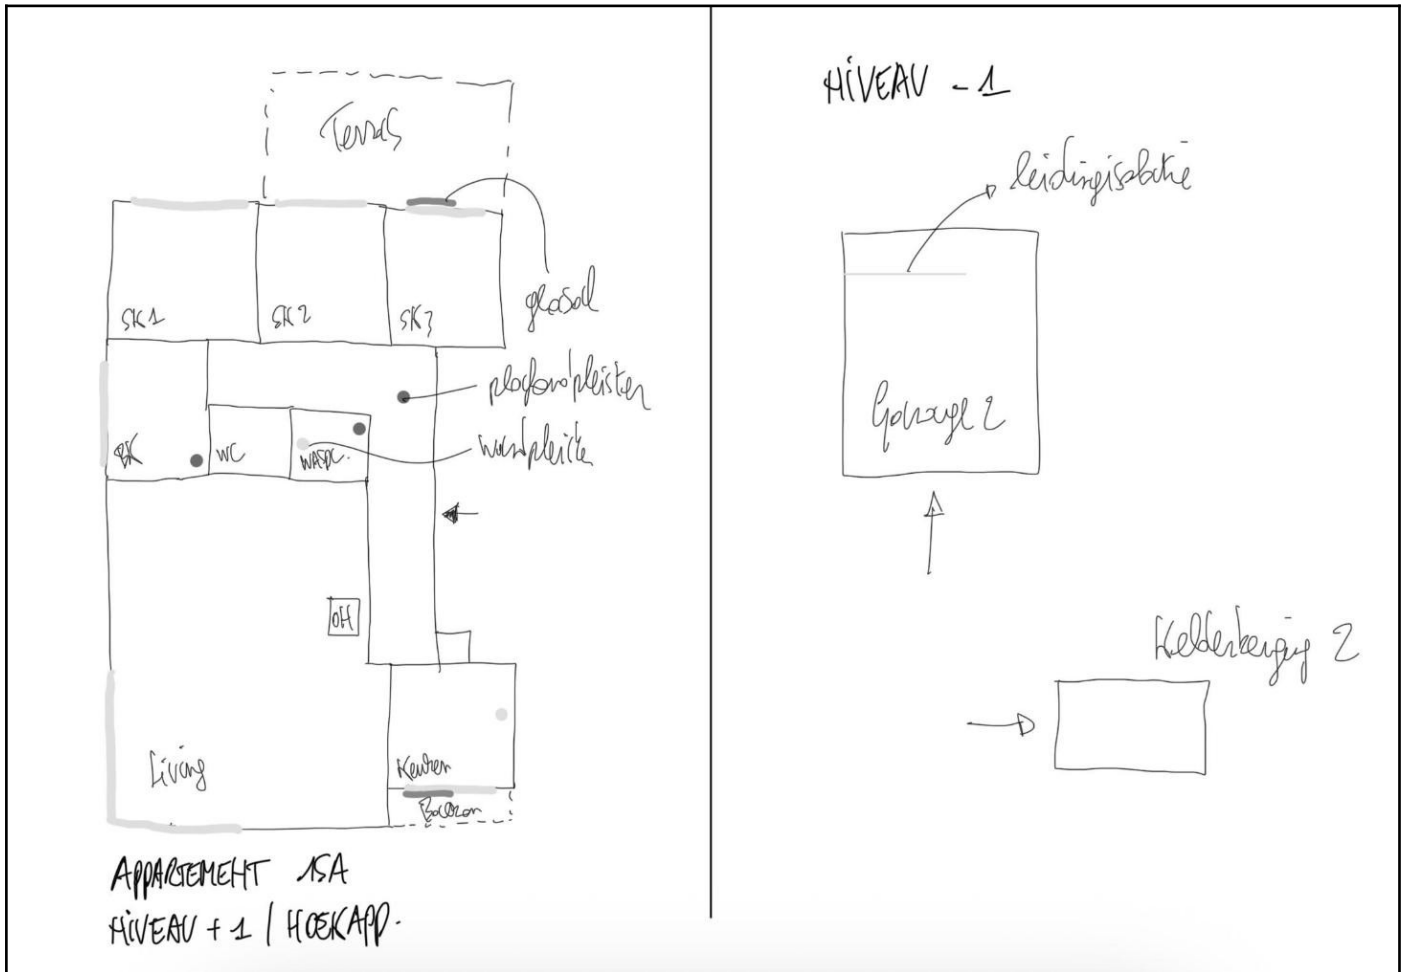 Terras
SK1
SK2
SK3
glasal
plafondpleister
BK
WC
WASPL.
wandpleister
OH
Living
Keuken
Balkon
APPARTEMENT 15A
NIVEAU +1 / HOEKAPP.
NIVEAU -1
leidingisolatie
Garage 2
Kelderberging 2